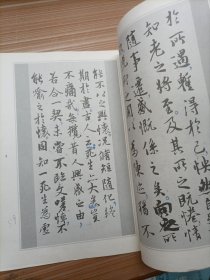 於所遇蹔得於己
知老之將至及其所之既惓情
隨事遷感慨係之矣向之所
欣俛仰之間以為陳迹猶不
能不以之興懷況脩短隨化終
期於盡古人云死生亦大矣豈
不痛哉每攬昔人興感之由
若合一契未嘗不臨文嗟悼不
能喻之於懷固知一死生為虛